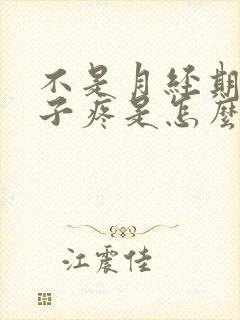 不是月经期
子疼是怎麼
江震佳